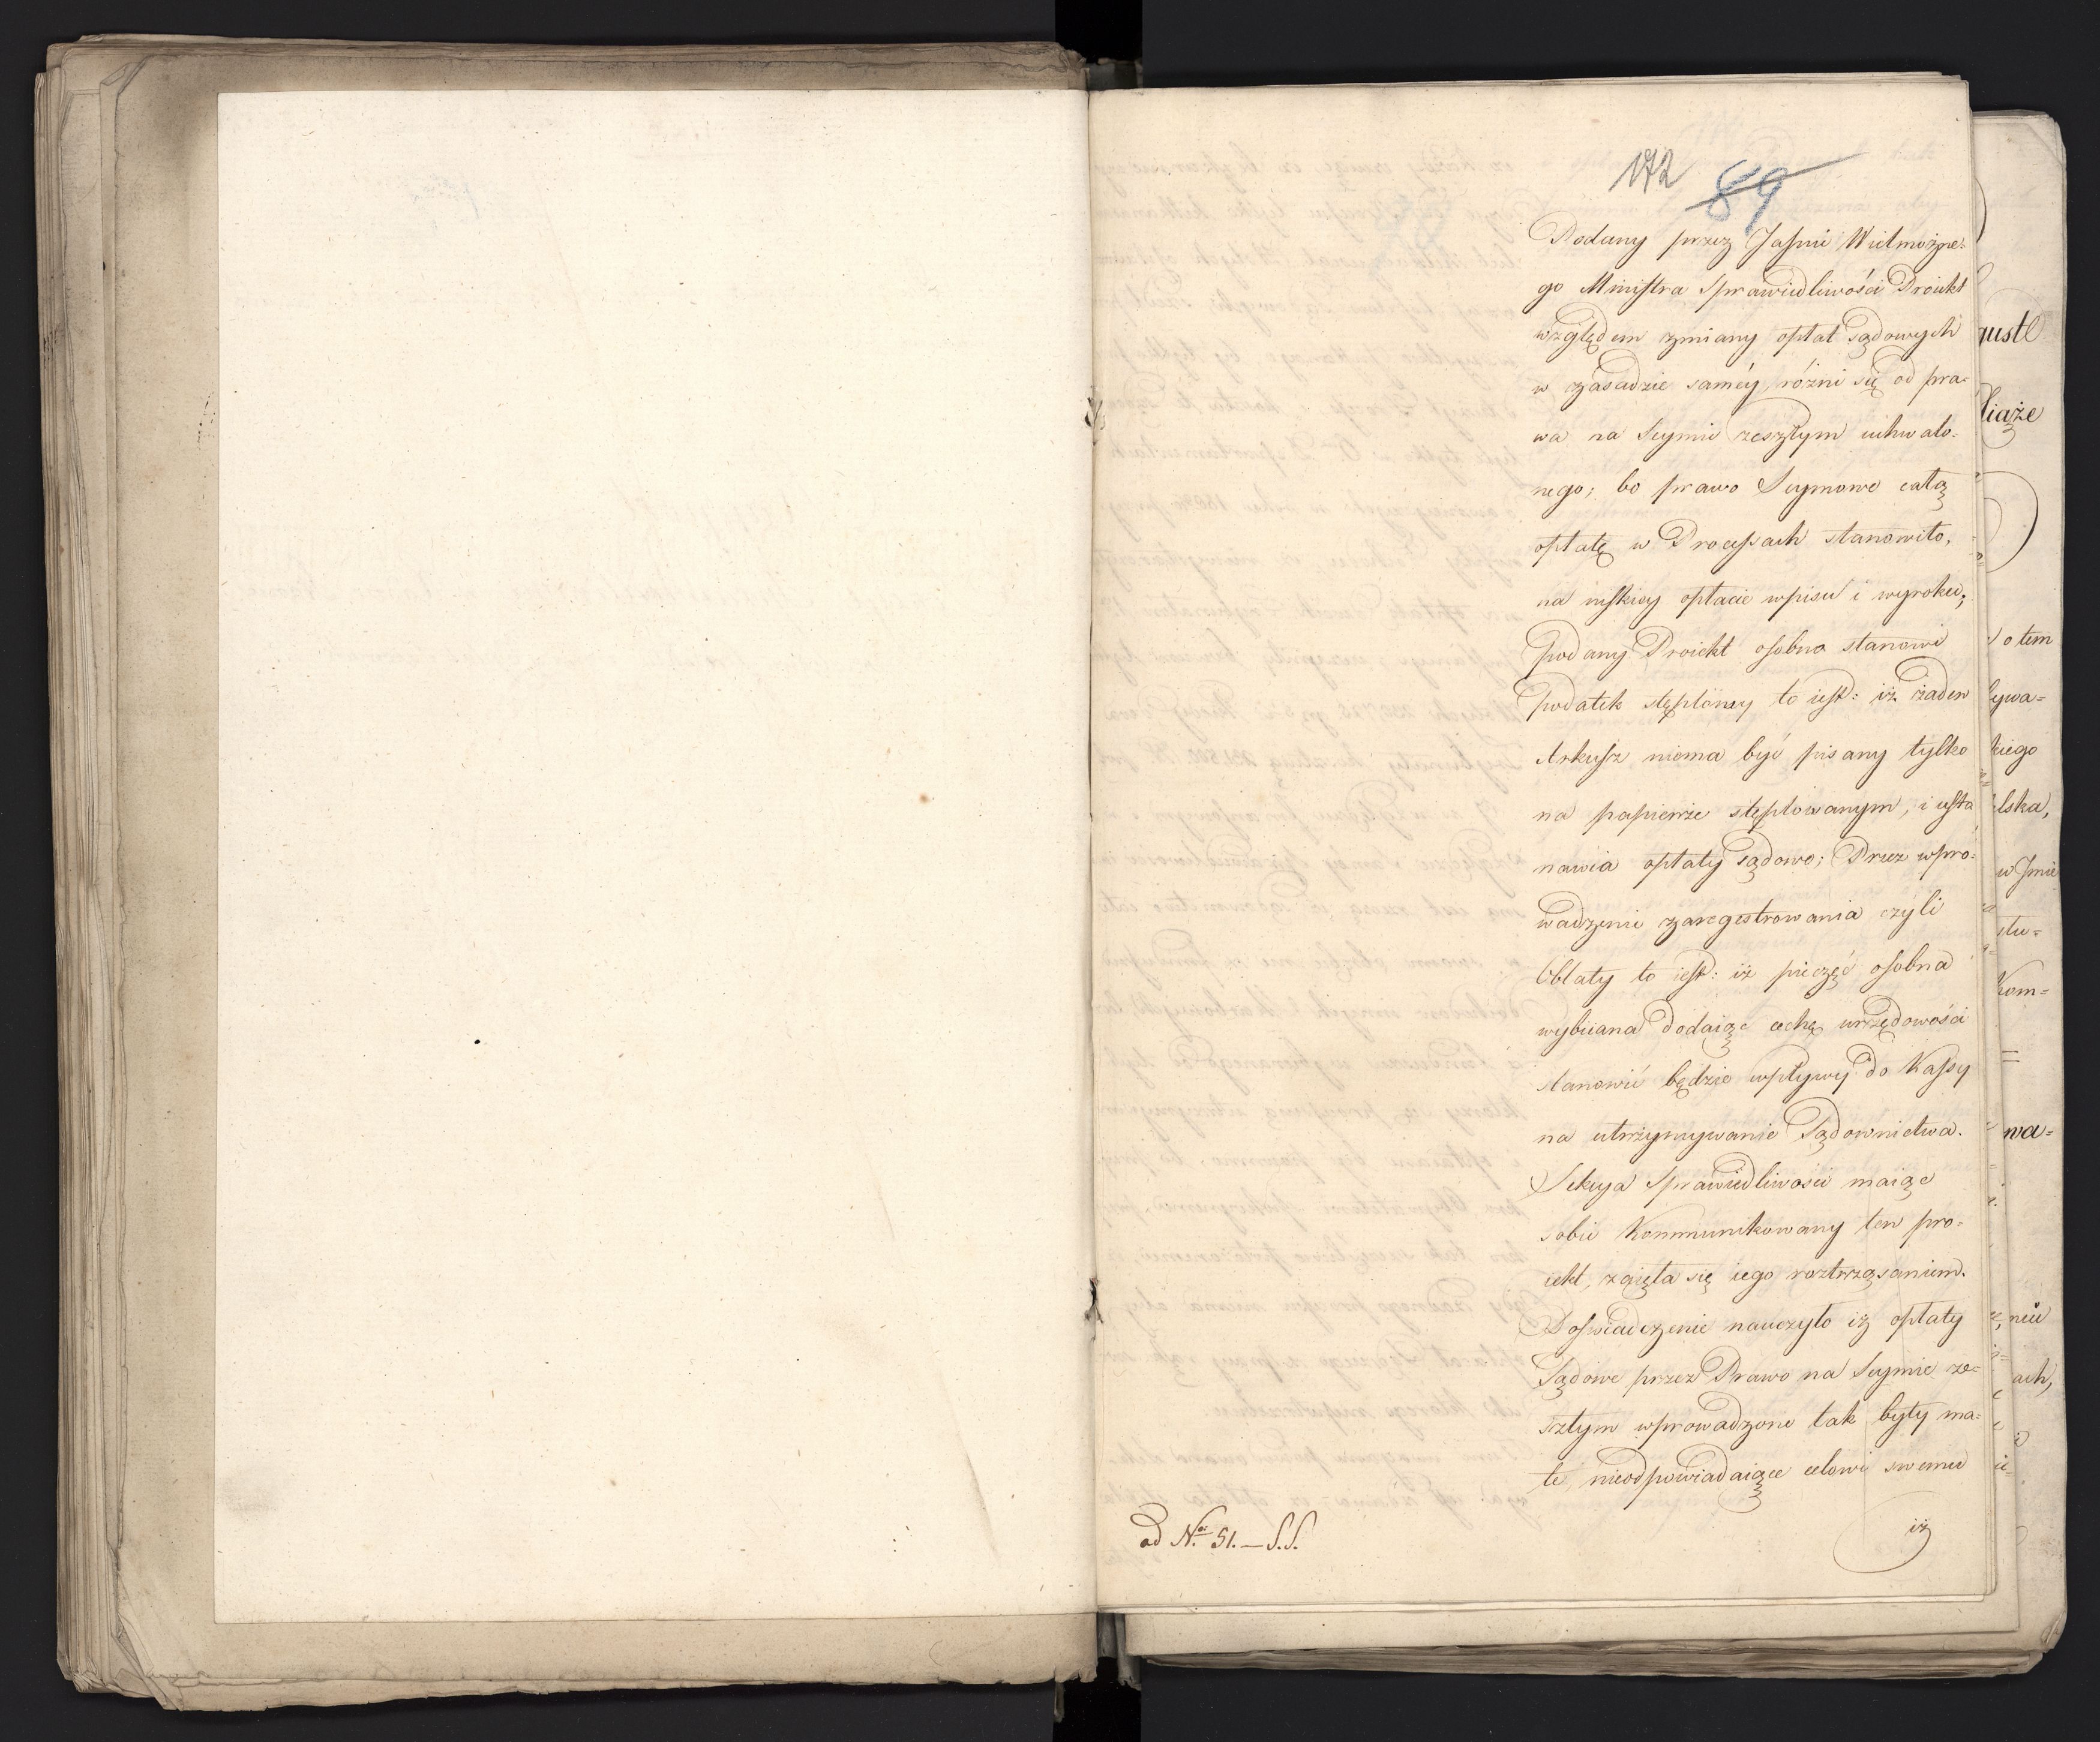 172 89
Podany przez Jaśnie Wielmożne-
go Ministra Sprawiedliwości Proiekt
względem zmiany opłat sądowych
w zasadzie saméy różni się od pra-
wa na Seymie zeszłym uchwalo-
nego; bo prawo Seymowe całą
opłatę w Processach stanowiło,
na niskiey opłacie wpisu i wyroku;
podany Proiekt osobno stanowi
podatek stęplowy to iest: iż żaden
Arkusz niema być pisany tylko
na papierze stęplowanym, i usta
nawia opłaty sądowe; Przez wpro-
wadzenie zaregestrowania czyli
Oblaty to iest: iż pieczęć osobna
wybiiana dodaiąc cechę urzędowości
stanowić będzie wpływy do Kassy
na utrzymywanie Sądownictwa.
Sekcya Sprawiedliwości maiąc
sobie Kommunikowany ten pro-
iekt, zaięła się iego roztrząsaniem.
Doświadczenie nauczyło iż opłaty
Sądowe przez Prawo na Seymie ze-
szłym wprowadzone tak były ma-
łe, nieodpowiadaiące celowi swemu
iż
ad No. 51. — S.S.
gust
liąże
o tem
ywa=
kiego
lska,
w Jmie
stu=
Kom=
=
wa=
niu
ach,